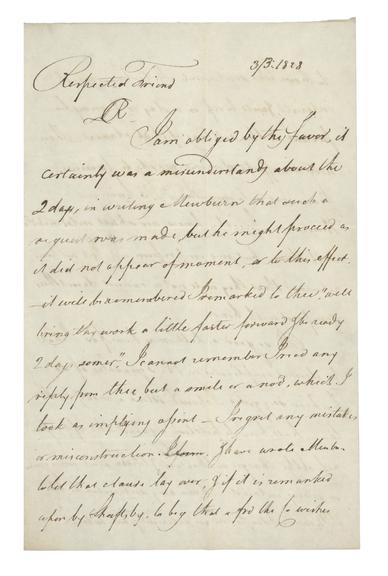 3/3. 1828
Respected Friend
R
I am obliged by thy favor, it
certainly was a misunderstandg about the
2 days, in writing Mewburn that such a
request was made, but he might proceed as
it did not appear of moment, or to this effect.
— it will be remembered I remarked to thee "will
bring the work a little faster forward & be ready
2 days sooner", I cannot remember I recd any
reply from thee, but a smile or a nod, which I
took as implying assent — I regret any mistake
or misconstruction. I have wrote Mewbn
to let that clause lay over, & if it is remarked
upon by Shaftsby. to beg that the Co wishes